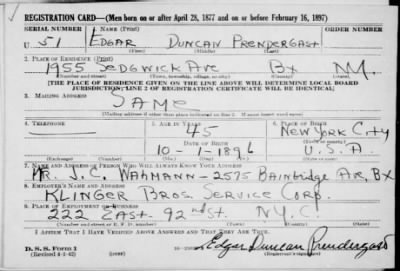 REGISTRATION CARD—(Men born on or after April 28, 1877 and on or before February 16, 1897)
SERIAL NUMBER 1. NAME (Print) ORDER NUMBER
U 51 EDGAR DUNCAN PRENDERGAST
(First) (Middle) (Last)
2. PLACE OF RESIDENCE (Print)
1955 SEDGWICK AVE BX N.Y.
(Number and street) (Town, township, village, or city) (County) (State)
[THE PLACE OF RESIDENCE GIVEN ON THE LINE ABOVE WILL DETERMINE LOCAL BOARD
JURISDICTION; LINE 2 OF REGISTRATION CERTIFICATE WILL BE IDENTICAL]
3. MAILING ADDRESS
SAME
[Mailing address if other than place indicated on line 2. If same insert word same]
4. TELEPHONE 5. AGE IN YEARS 6. PLACE OF BIRTH
45 NEW YORK CITY
DATE OF BIRTH (Town or county)
10-1-1896 U.S.A.
(Exchange) (Number) (Mo.) (Day) (Yr.) (State or country)
7. NAME AND ADDRESS OF PERSON WHO WILL ALWAYS KNOW YOUR ADDRESS
MR. J.C. WAHMANN—2575 BAINBRIDGE AVE, BX
8. EMPLOYER'S NAME AND ADDRESS
KLINGER BROS. SERVICE CORP.
9. PLACE OF EMPLOYMENT OR BUSINESS
222 EAST-92nd ST. N.Y.C.
(Number and street or R. F. D. number) (Town) (County) (State)
I AFFIRM THAT I HAVE VERIFIED ABOVE ANSWERS AND THAT THEY ARE TRUE.
D. S. S. Form 1
(Revised 4-1-42) (over) Edgar Duncan Prendergast